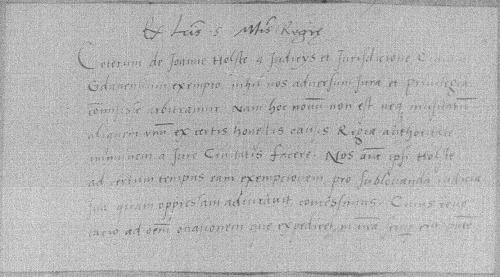 Ex Lris S Mtis Regie
Ceterum de Joanne Holste a Judicys et Jurisdicione Civium
Gdanensium exempto nihil nos adversum Jura et privilegia
comisisse arbitramur. Nam hoc novum non est neq inusitatum
aliquem vnum ex certis honestis causis Regia authoritate
immunem a Jure Civitatis facere. Nos autem ipsi Holste
ad certum tempus eam exempcionem pro sublevanda
sua quam oppressam concessimus. Cuius
ad omnem que expediret in